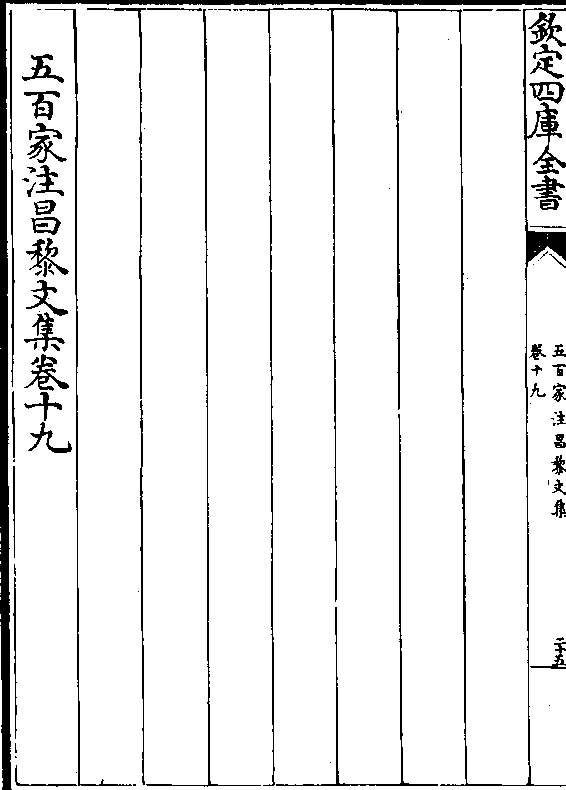 欽定四庫全書
五百家注昌黎文集
卷十九
二十五
五百家注昌黎文集卷十九